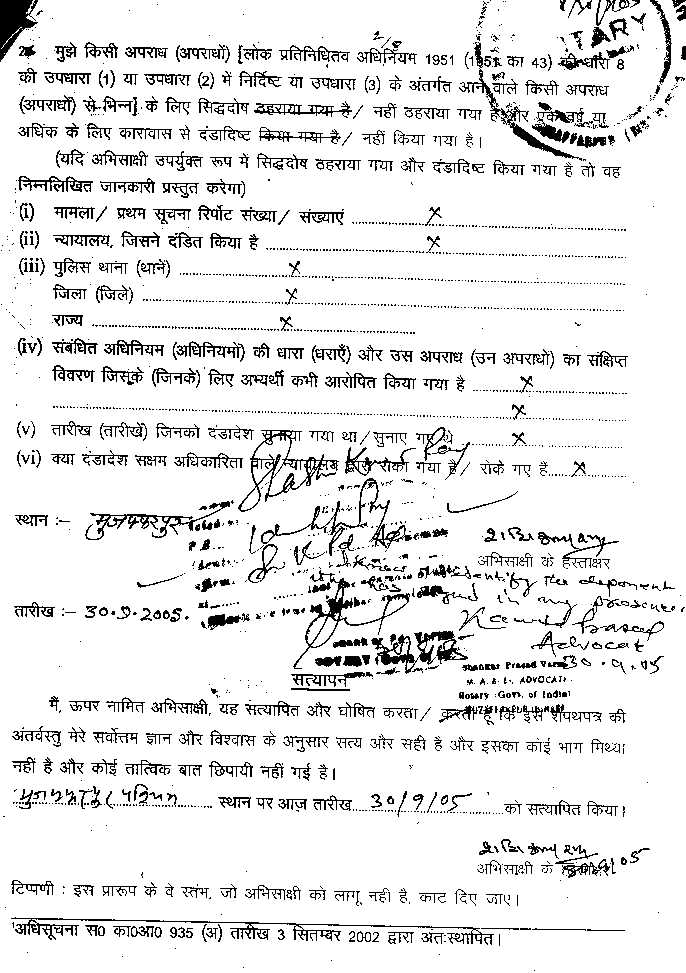 2/8
NOTARY
2. मुझे किसी अपराध (अपराधों) [लोक प्रतिनिधितव अधिनियम 1951 (1951 का 43) की धारा 8
की उपधारा (1) या उपधारा (2) में निर्दिष्ट या उपधारा (3) के अंतर्गत आने वाले किसी अपराध
(अपराधों) से भिन्न] के लिए सिद्धदोष ठहराया गया है/ नहीं ठहराया गया है और एक वर्ष या
अधिक के लिए कारावास से दंडादिष्ट किया गया है/ नहीं किया गया है।
(यदि अभिसाक्षी उपर्युक्त रूप में सिद्धदोष ठहराया गया और दंडादिष्ट किया गया है तो वह
निम्नलिखित जानकारी प्रस्तुत करेगा)
(i) मामला/ प्रथम सूचना रिर्पोट संख्या/ संख्याएं ........ X
(ii) न्यायालय, जिसने दंडित किया है ........ X
(iii) पुलिस थाना (थाने) ........ X
जिला (जिले) ........ X
राज्य ........ X
(iv) संबंधित अधिनियम (अधिनियमों) की धारा (धराएँ) और उस अपराध (उन अपराधों) का संक्षिप्त
विवरण जिसके (जिनके) लिए अभ्यर्थी कभी आरोपित किया गया है ........ X
........ X
(v) तारीख (तारीखें) जिनको दंडादेश सुनाया गया था/सुनाए गए थे ........ X
(vi) क्या दंडादेश सक्षम अधिकारिता वाले न्यायालय द्वारा रोका गया है/ रोके गए हैं ..... X
स्थान :- मुजफ्फरपुर
अभिसाक्षी के हस्ताक्षर
identify the deponent
signed in my presence
तारीख :- 30.9.2005.
Advocat
30.9.05
Shankar Prasad Varma
M. A. B. L. ADVOCATE
Notary (Govt. of India)
MUZAFFARPUR (BIHAR)
सत्यापन
मैं, ऊपर नामित अभिसाक्षी, यह सत्यापित और घोषित करता/ करती हूँ कि इस शपथपत्र की
अंतर्वस्तु मेरे सर्वोत्तम ज्ञान और विश्वास के अनुसार सत्य और सही है और इसका कोई भाग मिथ्या
नहीं है और कोई तात्विक बात छिपायी नहीं गई है।
स्थान पर आज़ तारीख 30/9/05 को सत्यापित किया।
अभिसाक्षी के 30/9/05
टिप्पणी : इस प्रारूप के वे स्तंभ, जो अभिसाक्षी को लागू नही है, काट दिए जाए।
¹अधिसूचना स0 का0आ0 935 (अ) तारीख 3 सितम्बर 2002 द्वारा अतःस्थापित।